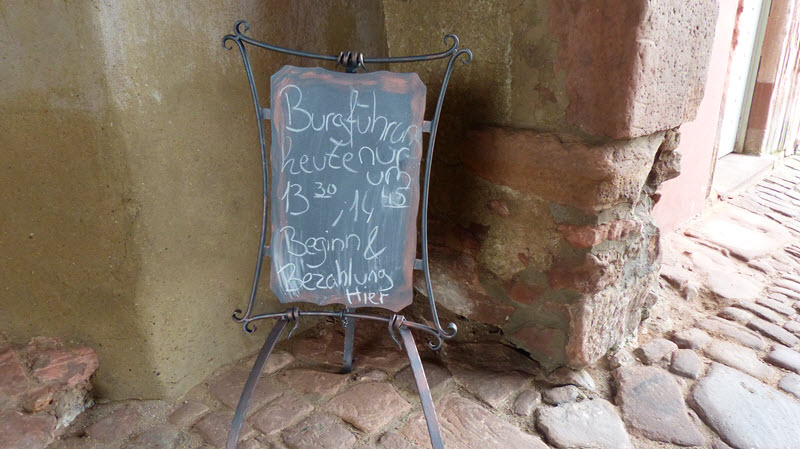 Burgführung
heute nur
um
13 30, 14 45
Beginn &
Bezahlung
Hier